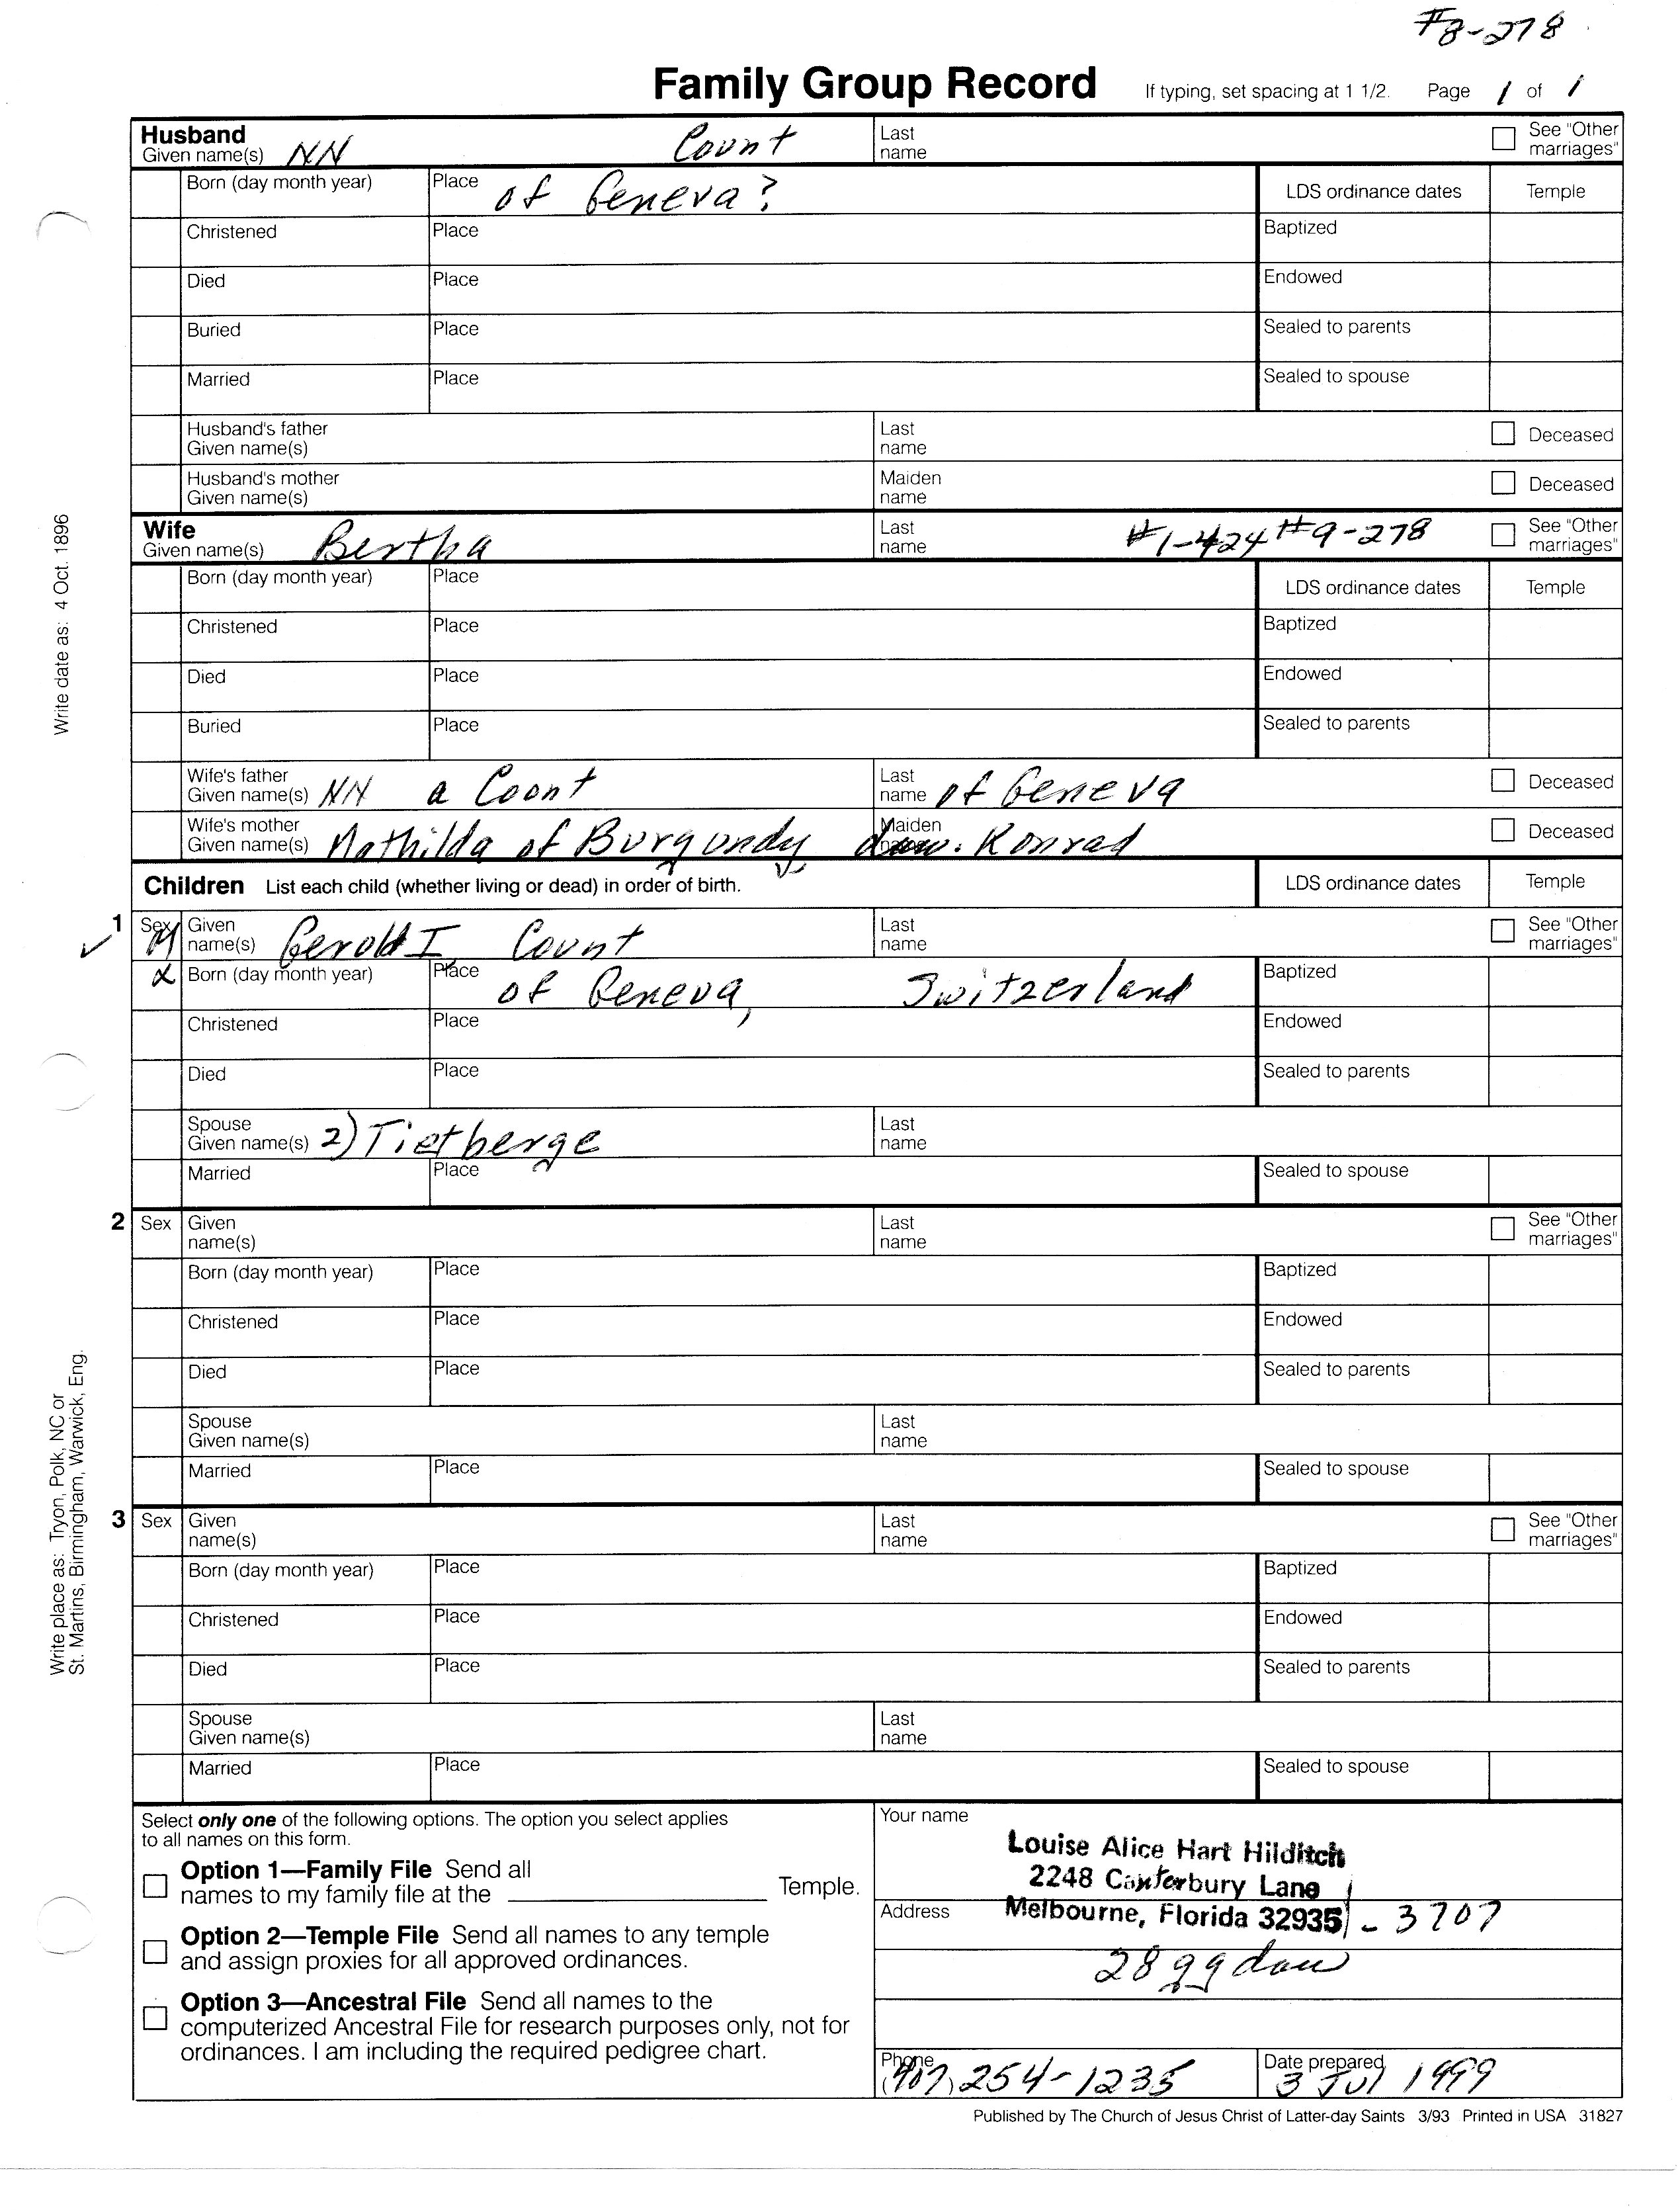 #8-278
Family Group Record If typing, set spacing at 1 1/2. Page 1 of 1
Husband
Given name(s) NN Count Last name See "Other marriages"
Born (day month year) Place of Geneva? LDS ordinance dates Temple
Christened Place Baptized
Died Place Endowed
Buried Place Sealed to parents
Married Place Sealed to spouse
Husband's father
Given name(s) Last name Deceased
Husband's mother
Given name(s) Maiden name Deceased
Wife
Given name(s) Bertha Last name #1-424 #9-278 See "Other marriages"
Born (day month year) Place LDS ordinance dates Temple
Christened Place Baptized
Died Place Endowed
Buried Place Sealed to parents
Wife's father
Given name(s) NN a Count Last name of Geneva Deceased
Wife's mother
Given name(s) Mathilda of Burgundy Maiden name dau. Konrad Deceased
Children List each child (whether living or dead) in order of birth. LDS ordinance dates Temple
1 Sex M Given name(s) Gerold I Count Last name See "Other marriages"
X Born (day month year) Place of Geneva, Switzerland Baptized
Christened Place Endowed
Died Place Sealed to parents
Spouse
Given name(s) 2) Tietberge Last name
Married Place Sealed to spouse
2 Sex Given name(s) Last name See "Other marriages"
Born (day month year) Place Baptized
Christened Place Endowed
Died Place Sealed to parents
Spouse
Given name(s) Last name
Married Place Sealed to spouse
3 Sex Given name(s) Last name See "Other marriages"
Born (day month year) Place Baptized
Christened Place Endowed
Died Place Sealed to parents
Spouse
Given name(s) Last name
Married Place Sealed to spouse
Write date as: 4 Oct. 1896
Write place as: Tryon, Polk, NC or
St. Martins, Birmingham, Warwick, Eng.
Select only one of the following options. The option you select applies
to all names on this form.
Option 1—Family File Send all
names to my family file at the Temple.
Option 2—Temple File Send all names to any temple
and assign proxies for all approved ordinances.
Option 3—Ancestral File Send all names to the
computerized Ancestral File for research purposes only, not for
ordinances. I am including the required pedigree chart.
Your name
Louise Alice Hart Hilditch
2248 Canterbury Lane
Address Melbourne, Florida 32935 - 3707
28 gg dau
Phone (407) 254-1235 Date prepared 3 Jul 1999
Published by The Church of Jesus Christ of Latter-day Saints 3/93 Printed in USA 31827